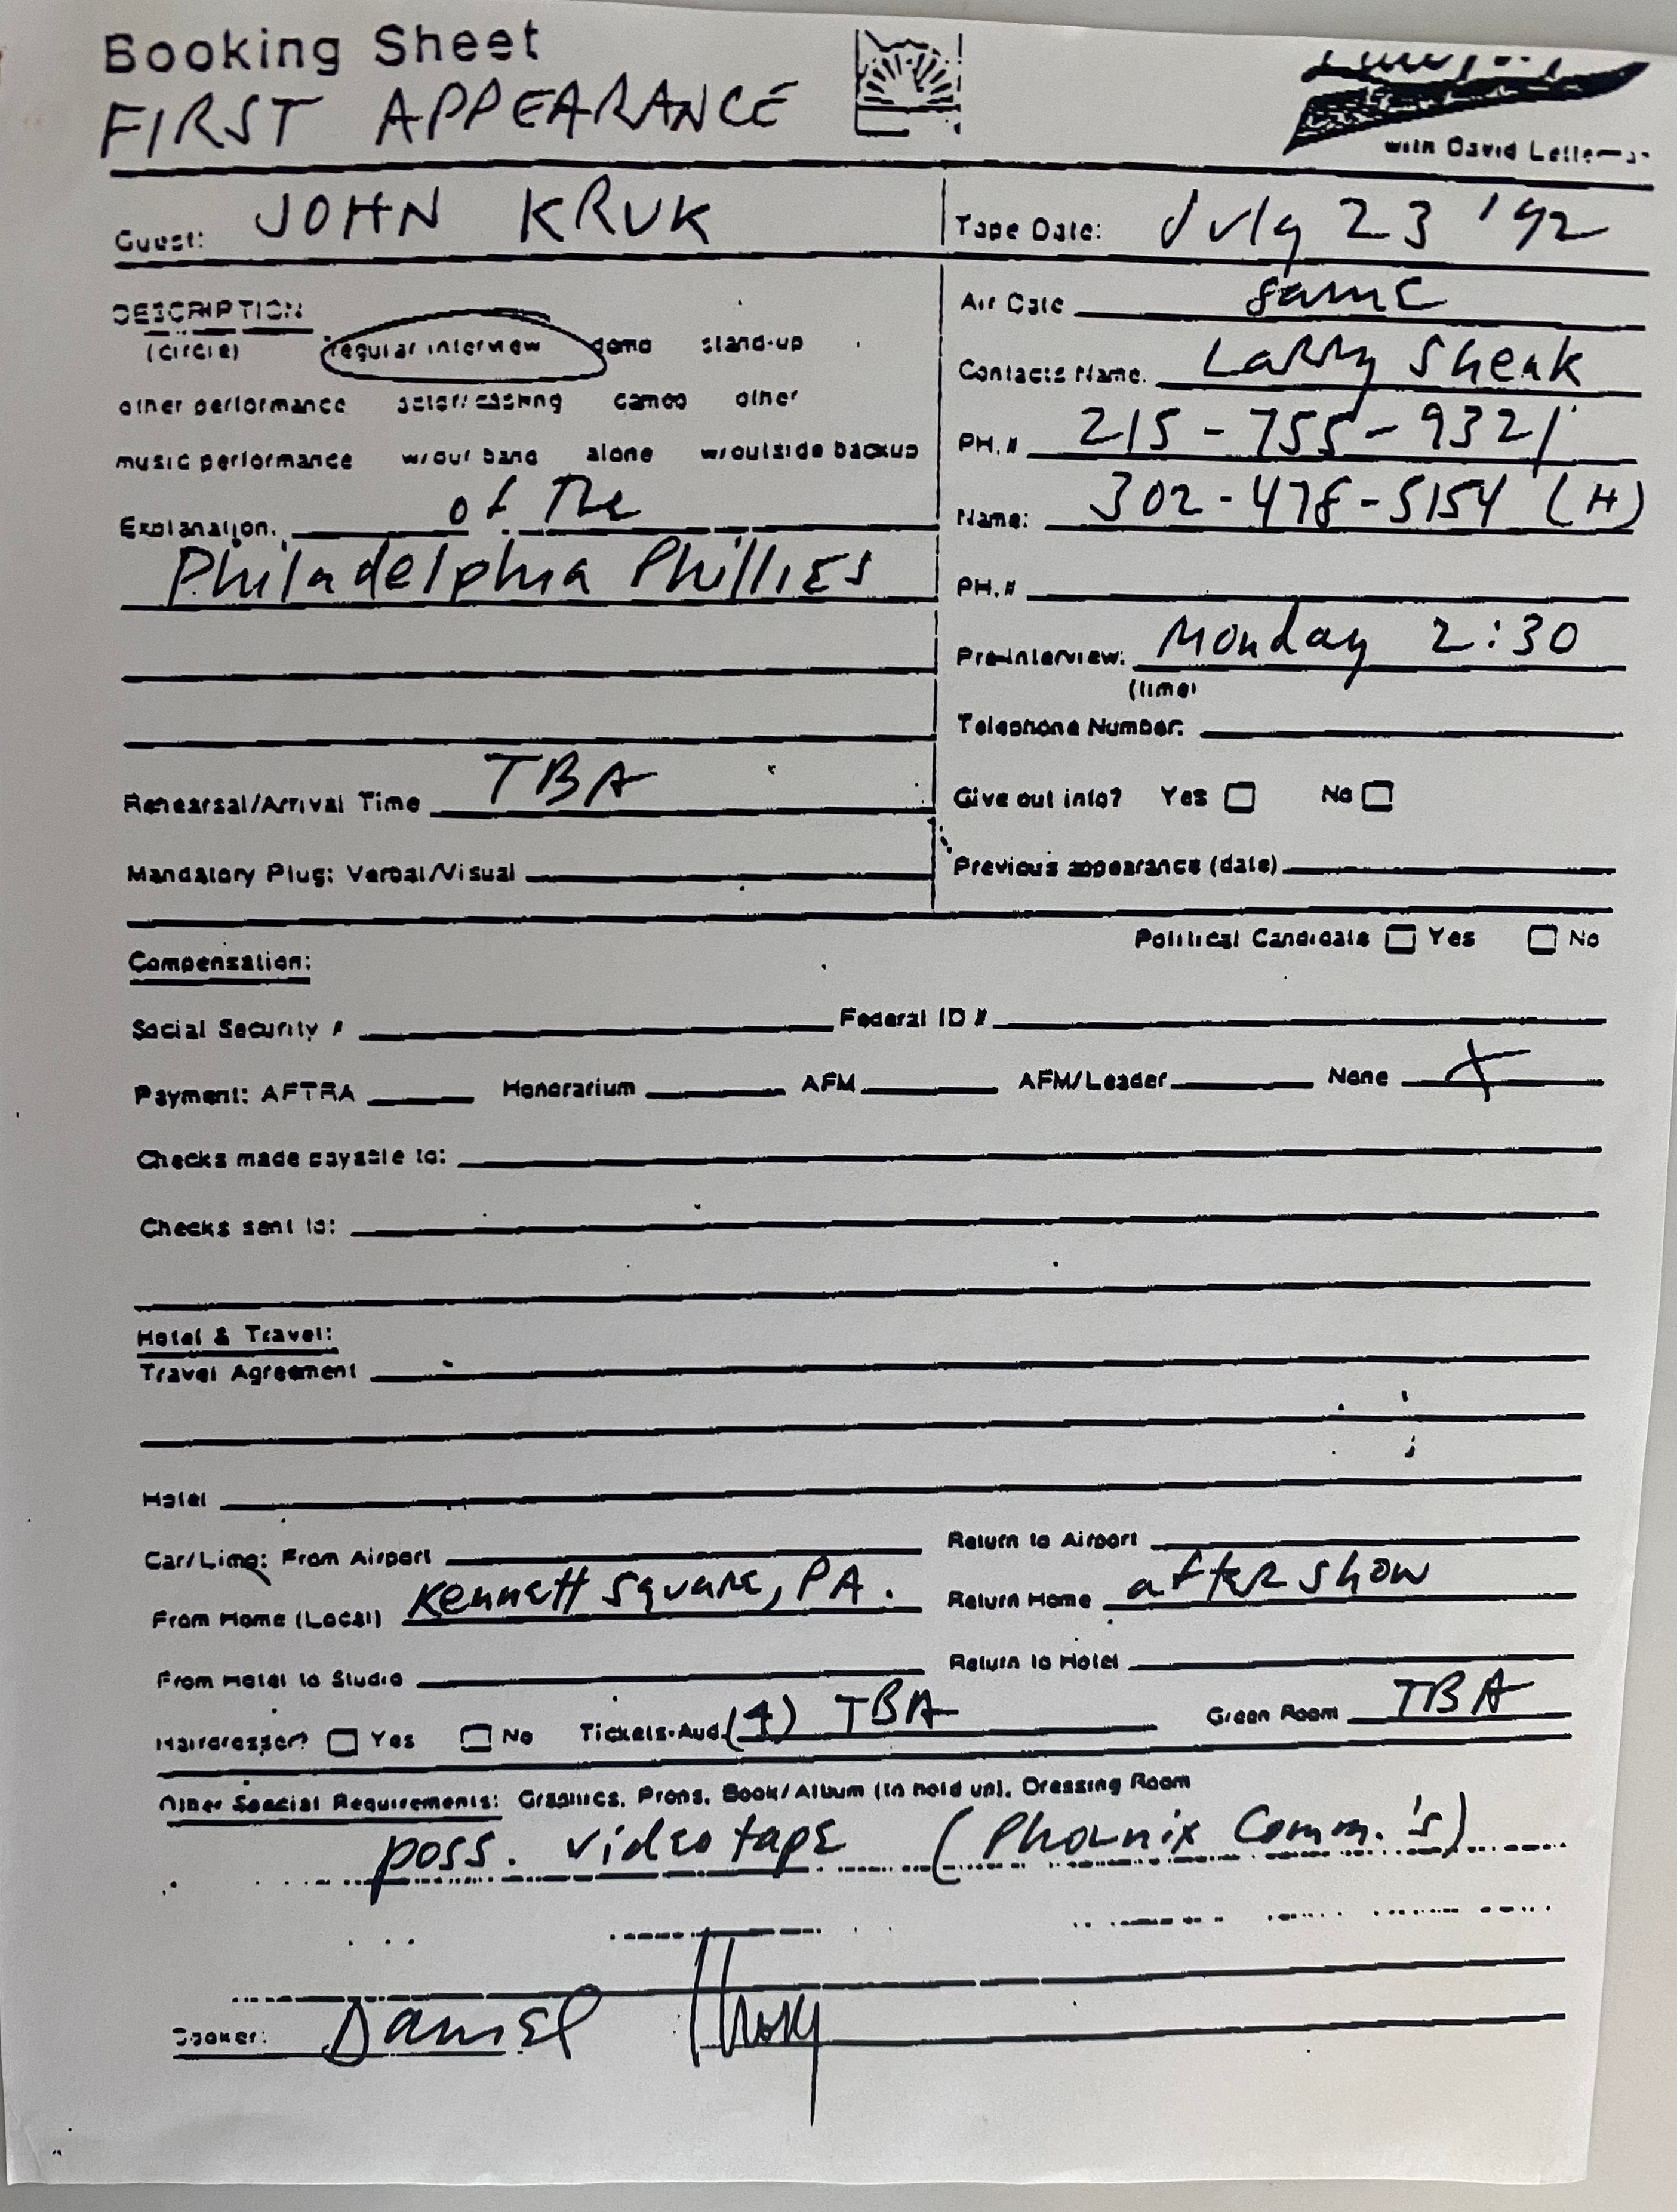 Booking Sheet
FIRST APPEARANCE
with David
Guest: JOHN KRUK
Tape Date: July 23 '92
DESCRIPTION
(circle) regular interview demo stand-up
other performance actor/casting cameo other
music performance w/our band alone w/outside backup
Explanation. of the
Philadelphia Phillies
Rehearsal/Arrival Time TBA
Mandatory Plug: Verbal/Visual
Air Date same
Contacts Name. Larry Shenk
PH.# 215-755-9321
Name: 302-478-5154 (H)
PH.#
Pre-Interview: Monday 2:30
(time)
Telephone Number:
Give out info? Yes No
Previous appearance (date)
Political Candidate Yes No
Compensation:
Social Security # Federal ID #
Payment: AFTRA Honorarium AFM AFM/Leader None X
Checks made payable to:
Checks sent to:
Hotel & Travel:
Travel Agreement
Hotel
Car/Limo: From Airport Return to Airport
From Home (Local) Kennett Square, PA. Return Home after show
From Hotel to Studio Return to Hotel
Hairdresser? Yes No Tickets-Aud. (4) TBA Green Room TBA
Other Special Requirements: Graphics, Props, Book/Album (to hold up), Dressing Room
poss. videotape (Phoenix Comm.'s)
Booker: Daniel